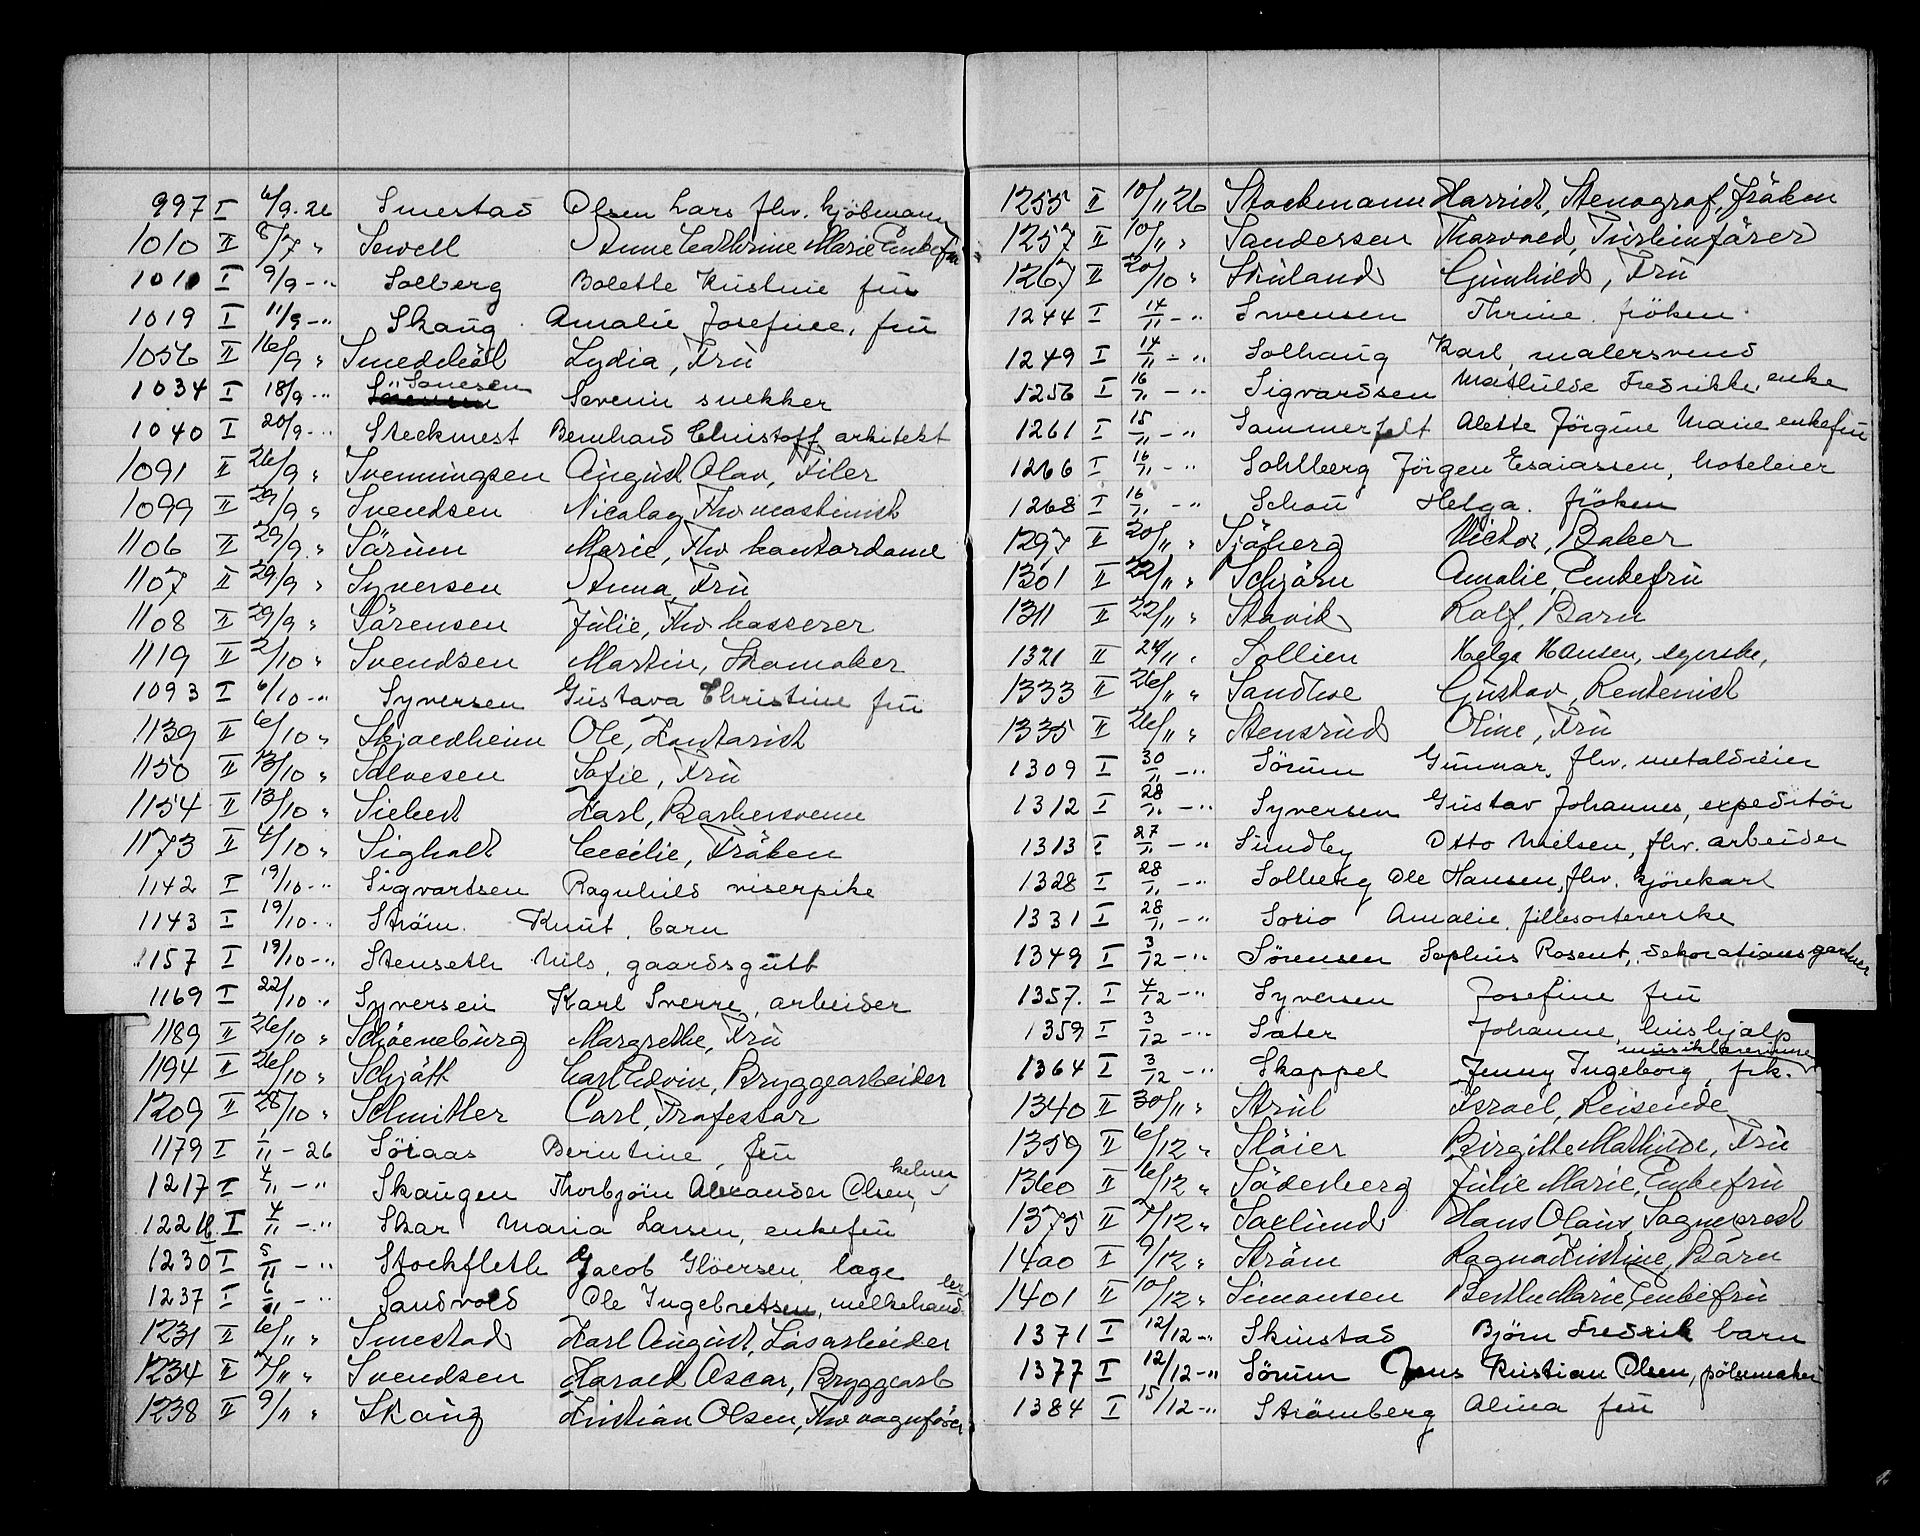 997 I 6/9.26 Smestad Olsen Lars fhv. kjöbmann
1010 II 8/7 " Sewell Anne Cathrine Marie Enkefru
1011 I 9/9 -" Solberg Bolette Kristine fru
1019 I 11/9 -" Skaug Amalie Josefine, fru
1056 II 16/9 " Lydia, Fru
1034 I 18/9 -" Severin snekker
1040 I 20/9 -" Steckmest Bernhard Christoff arkitekt
1091 II 26/9 " Svenningsen August Olav, Filer
1099 II 29/9 " Svendsen Nicolay, Fhv maskinist
1106 II 29/9 " Särum Marie, Fhv kontordame
1107 II 29/9 " Syversen Anna, Fru
1108 II 29/9 " Särensen Julie, Fhv kasserer
1119 II 2/10 " Svendsen Martin, Skomaker
1093 I 6/10 -" Syversen Gustava Christine fru
1139 II 6/10 " Skjoldheim Ole, Kontorist
1150 II 13/10 " Salvesen Sofie, Fru
1154 II 13/10 " Siebert Karl, Barbersvenn
1173 II 4/10 " Sigholt Cecilie, Fröken
1142 I 19/10 -" Sigvartsen Ragnhild viserpike
1143 I 19/10 -" Ström Knut, barn
1157 I 19/10 -" Stenseth Nils, gaardsgutt
1169 I 22/10 " Syversen Karl Sverre, arbeider
1189 II 26/10 " Schöeneburg Margrethe, Fru
1194 II 26/10 " Schjött Carl Edvin, Bryggearbeider
1209 II 28/10 " Schnitler Carl, Professor
1179 I 1/11 - 26 Söraas Berntine, fru
1217 I 4/11 -" Skaugen Thorbjörn Alexander Olsen, kelner
I 4/11 -" Skar Maria Larsen, enkefru
1230 I 5/11 -" Stockfleth Jacob Glöersen, læge
1237 I 6/11 -" Sandvold Ole Ingebretsen, melkehandler
1231 II 6/11 " Smestad Karl August, Lösarbeider
1234 II 7/11 " Svendsen Harald Oscar, Bryggearb
1238 II 9/11 " Skaug Kristian Olsen, Fhv vognförer
1255 II 10/11 26 Stockmann Harriet, Stenograf, Fröken
1257 II 10/11 " Sandersen Thorvald, Turbinförer
1267 II 20/10 " Gunhild, Fru
1244 I 14/11 -" Svensen Thrine fröken
1249 I 14/11 -" Solhaug Karl, malersvend
1256 I 16/11 -" Sigvardsen Mathilde Fredrikke, enke
1261 I 15/11 -" Sommerfelt Alette Jörgine Marie enkefru
1266 I 16/11 -" Sohlberg Jörgen Esaiassen, hoteleier
1268 I 16/11 -" Schou Helga fröken
1297 II 20/11 " Sjöberg Victor, Baker
1301 II 22/11 " Schjörn Amalie, Enkefru
1311 II 22/11 " Stavik Rolf, Barn
1321 II 24/11 " Sollien Helga Hansen, syerske,
1333 II 26/11 " Sandhoe Gustav, Rentenist
1335 II 26/11 " Stensrud Oline, Fru
1309 I 30/11 -" Sörum Gunnar, fhv. metaldreier
1312 I 28/11 -" Syversen Gustav Johannes, expeditör
1313 I 27/11 -" Sundby Otto Nielsen, fhv. arbeider
1328 I 28/11 -" Solberg Ole Hansen, fhv. kjörekarl
1331 I 28/11 -" Sorio Amalie fillesortererske
1349 I 3/12 -" Sörensen Sophus Rosent, dekorationsgartner
1357. I 4/12 -" Syversen Josefine fru
1359 I 3/12 -" Sater Johanne, hushjalp
1364 I 3/12 -" Skappel Jenny Ingeborg, frk. musiklærerinne
1340 II 30/11 " Strul Israel, Reisende
1359 II 6/12 " Slöier Birgitte Mathilde, Fru
1360 II 6/12 " Söderberg Julie Marie, Enkefru
1375 II 7/12 " Saxlund Hans Olaus, Sogneprest
1400 I 9/12 " Ström Ragna Kristine, Barn
1401 II 10/12 " Simonsen Berthe Marie, Enkefru
1371 I 12/12 -" Skinstad Björn Fredrik barn
1377 I 12/12 -" Sörum Jens Kristian Olsen, pölsemaker
1384 I 15/12 -" Strömberg Alina fru